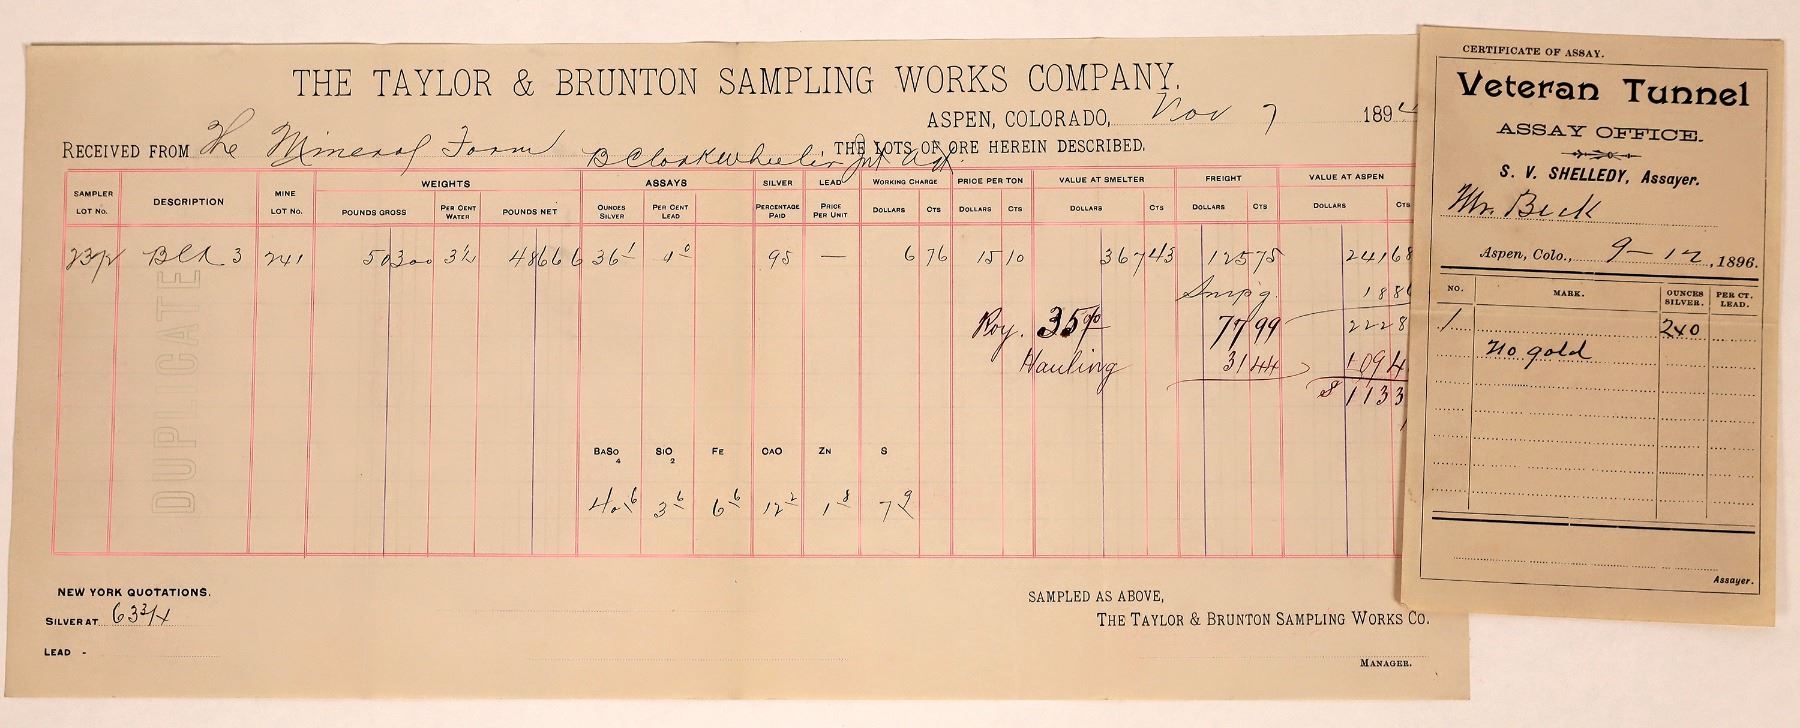 THE TAYLOR & BRUNTON SAMPLING WORKS COMPANY.
ASPEN, COLORADO, Nov 7 1894
RECEIVED FROM The Mineral Farm B Clark Wheeler THE LOTS OF ORE HEREIN DESCRIBED.
SAMPLER LOT No. DESCRIPTION MINE LOT No. WEIGHTS ASSAYS SILVER LEAD WORKING CHARGE PRICE PER TON VALUE AT SMELTER FREIGHT VALUE AT ASPEN
POUNDS GROSS PER CENT WATER POUNDS NET OUNCES SILVER PER CENT LEAD PERCENTAGE PAID PRICE PER UNIT DOLLARS CTS DOLLARS CTS DOLLARS CTS DOLLARS CTS DOLLARS CTS
3 241 50300 3½ 48666 36 1 95 — 6 76 15 10 367 43 125 75 241 68
Smp'g. 188
Roy. 35% 77 99 222 8
Hauling 31 44 109 4
$ 113 3
DUPLICATE
BASO4 SIO2 FE CAO ZN S
40 6 3 6 6 6 12 2 1 8 7 9
NEW YORK QUOTATIONS.
SILVER AT 63 3/4
LEAD -
SAMPLED AS ABOVE,
THE TAYLOR & BRUNTON SAMPLING WORKS CO.
MANAGER.
CERTIFICATE OF ASSAY.
Veteran Tunnel
ASSAY OFFICE.
S. V. SHELLEDY, Assayer.
Mr. Beck
Aspen, Colo., 9-12, 1896.
NO. MARK. OUNCES SILVER. PER CT. LEAD.
1 240
No gold
Assayer.